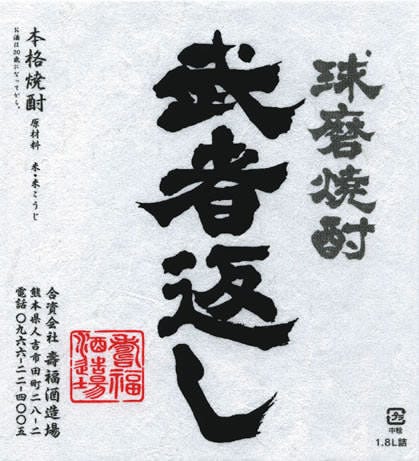 球磨焼酎
武者返し
本格焼酎
原材料 米・米こうじ
お酒は20歳になってから。
合資会社 壽福酒造場
熊本県人吉市田町二八-二
電話〇九六六-二二-四〇〇五
壽福
酒造場
プラ
中栓
1.8L詰